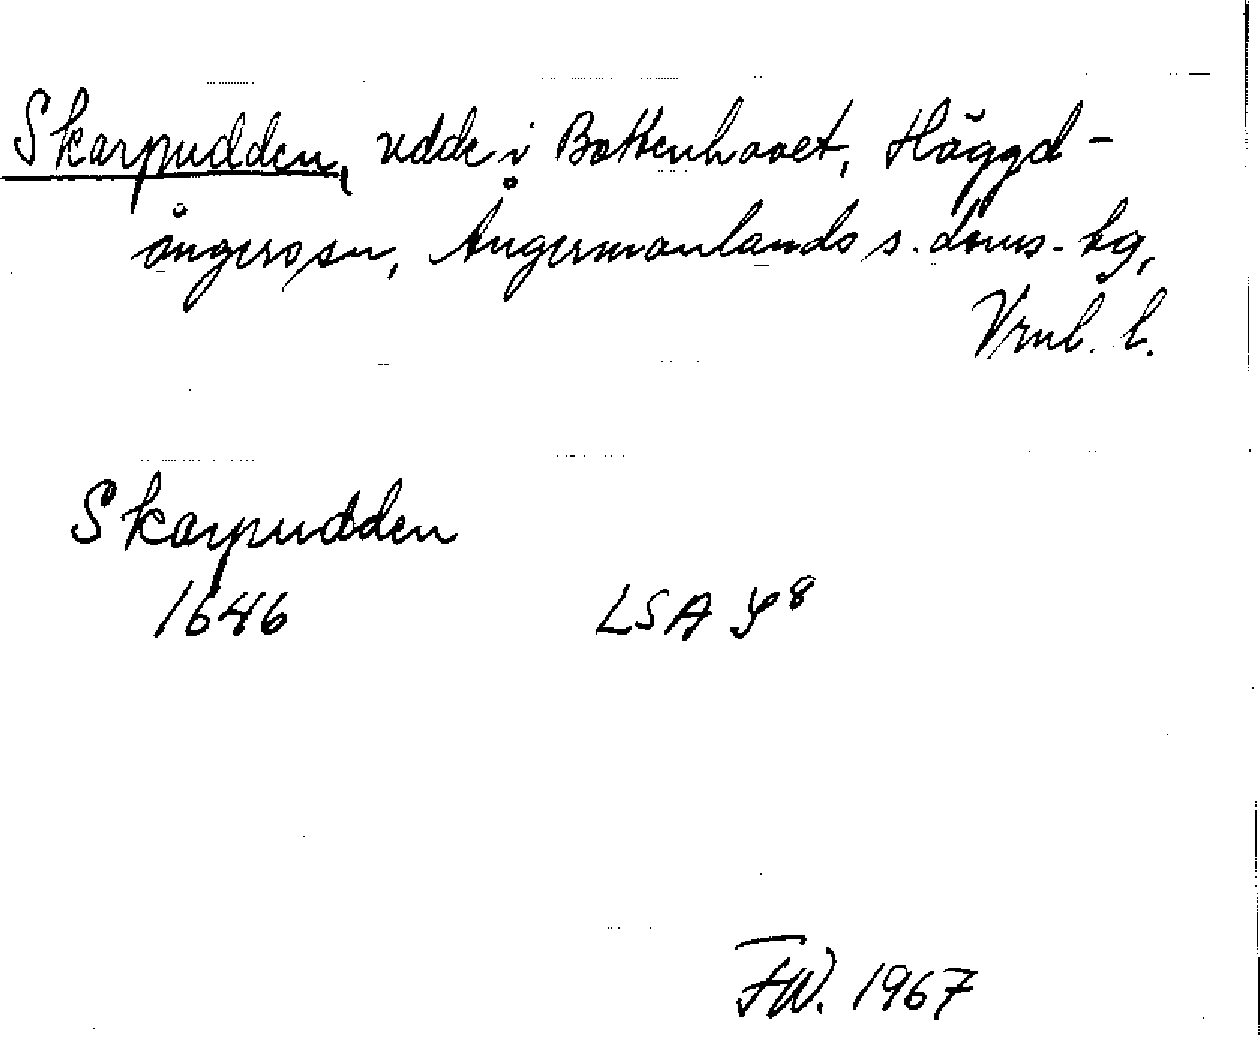 Skarpudden, udde i Bottenhavet, Häggd-
ångers sn, Ångermanlands s. doms-hg,
Vrnl. l.
Skarpudden
1646 LSA Y⁸
FW. 1967